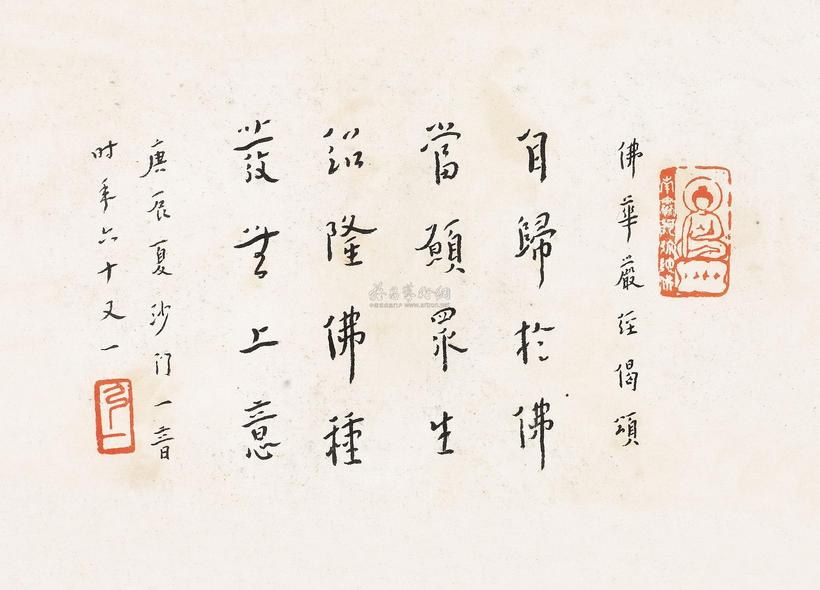 佛華嚴經偈頌
自歸於佛
當願眾生
紹隆佛種
發無上意
庚辰夏沙门一音
时年六十又一